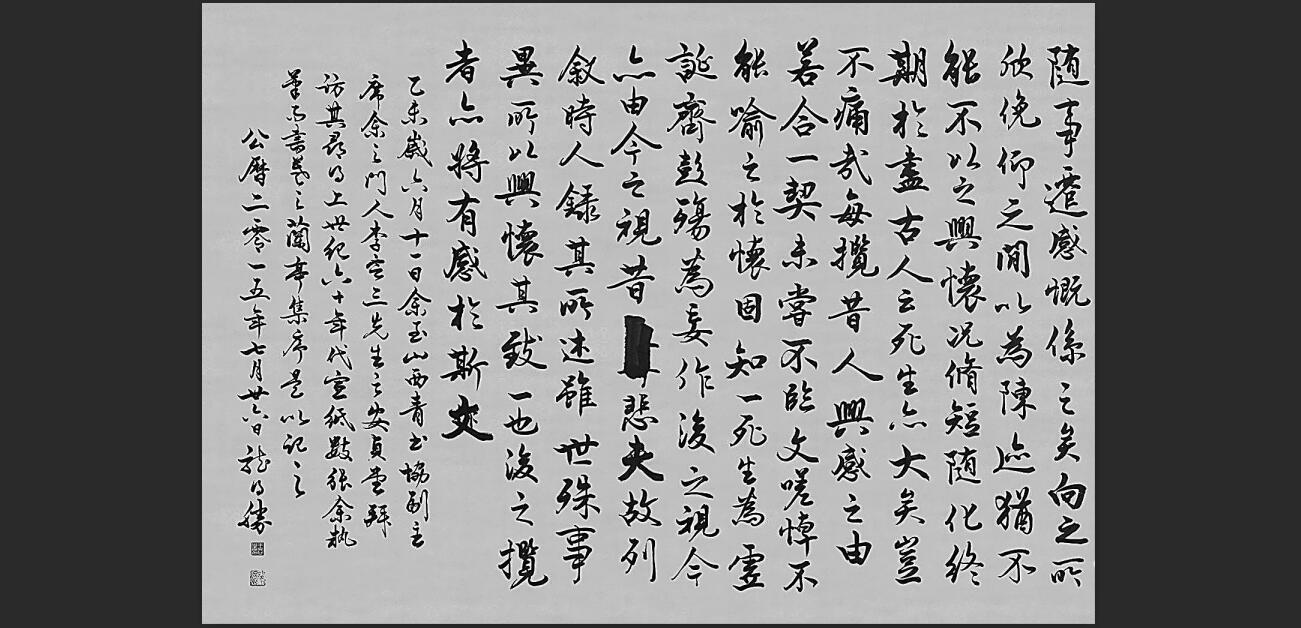 随事遷感慨係之矣向之所
欣俛仰之間以為陳迹猶不
能不以之興懷況脩短随化終
期於盡古人云死生亦大矣豈
不痛哉每攬昔人興感之由
若合一契未嘗不臨文嗟悼不
能喻之於懷固知一死生為虛
誕齊彭殤為妄作後之視今
亦由今之視昔悲夫故列
叙時人錄其所述雖世殊事
異所以興懷其致一也後之攬
者亦將有感於斯文
乙未歲六月十一日余玉山西青書協副主
席余之門人李雲三先生之安貞堂拜
訪其尋得上世紀六十年代宣紙數張余執
筆而書之蘭亭集序是以記之
公曆二零一五年七月廿六日 得勝